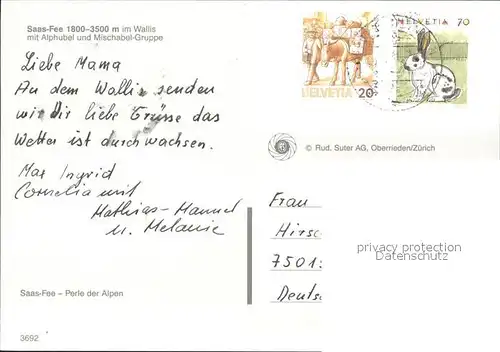 Saas-Fee 1800–3500 m im Wallis
mit Alphubel und Mischabel-Gruppe
HELVETIA 20
HELVETIA 70
Liebe Mama
An dem Wallis senden
wir Dir liebe Grüsse das
Wetter ist durchwachsen.
Max Ingrid
Cornelia mit
Mathias-Manuel
u. Melanie
© Rud. Suter AG, Oberrieden/Zürich
Frau
Hirsc
7501
Deuts
privacy protection
Datenschutz
Saas-Fee – Perle der Alpen
3692